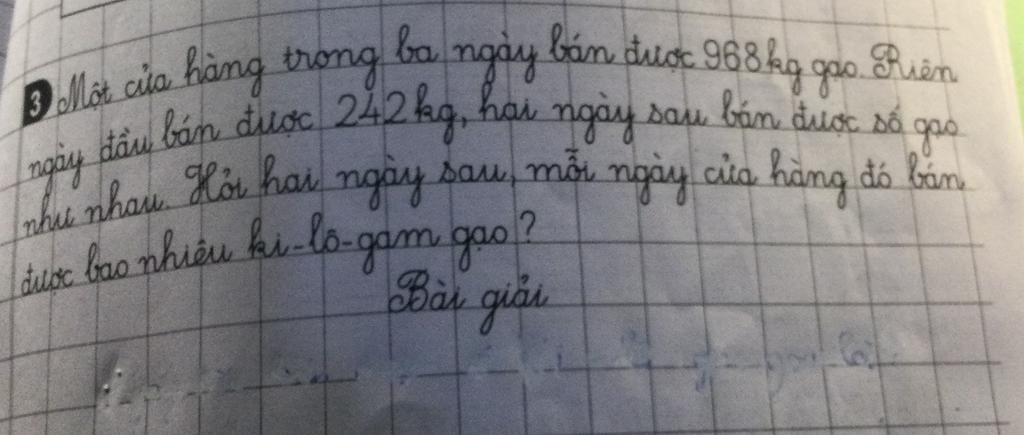 3 Một cửa hàng trong ba ngày bán được 968kg gạo. Riên
ngày đầu bán được 242kg, hai ngày sau bán được số gạo
như nhau. Hỏi hai ngày sau, mỗi ngày cửa hàng đó bán
được bao nhiêu ki-lô-gam gạo?
Bài giải